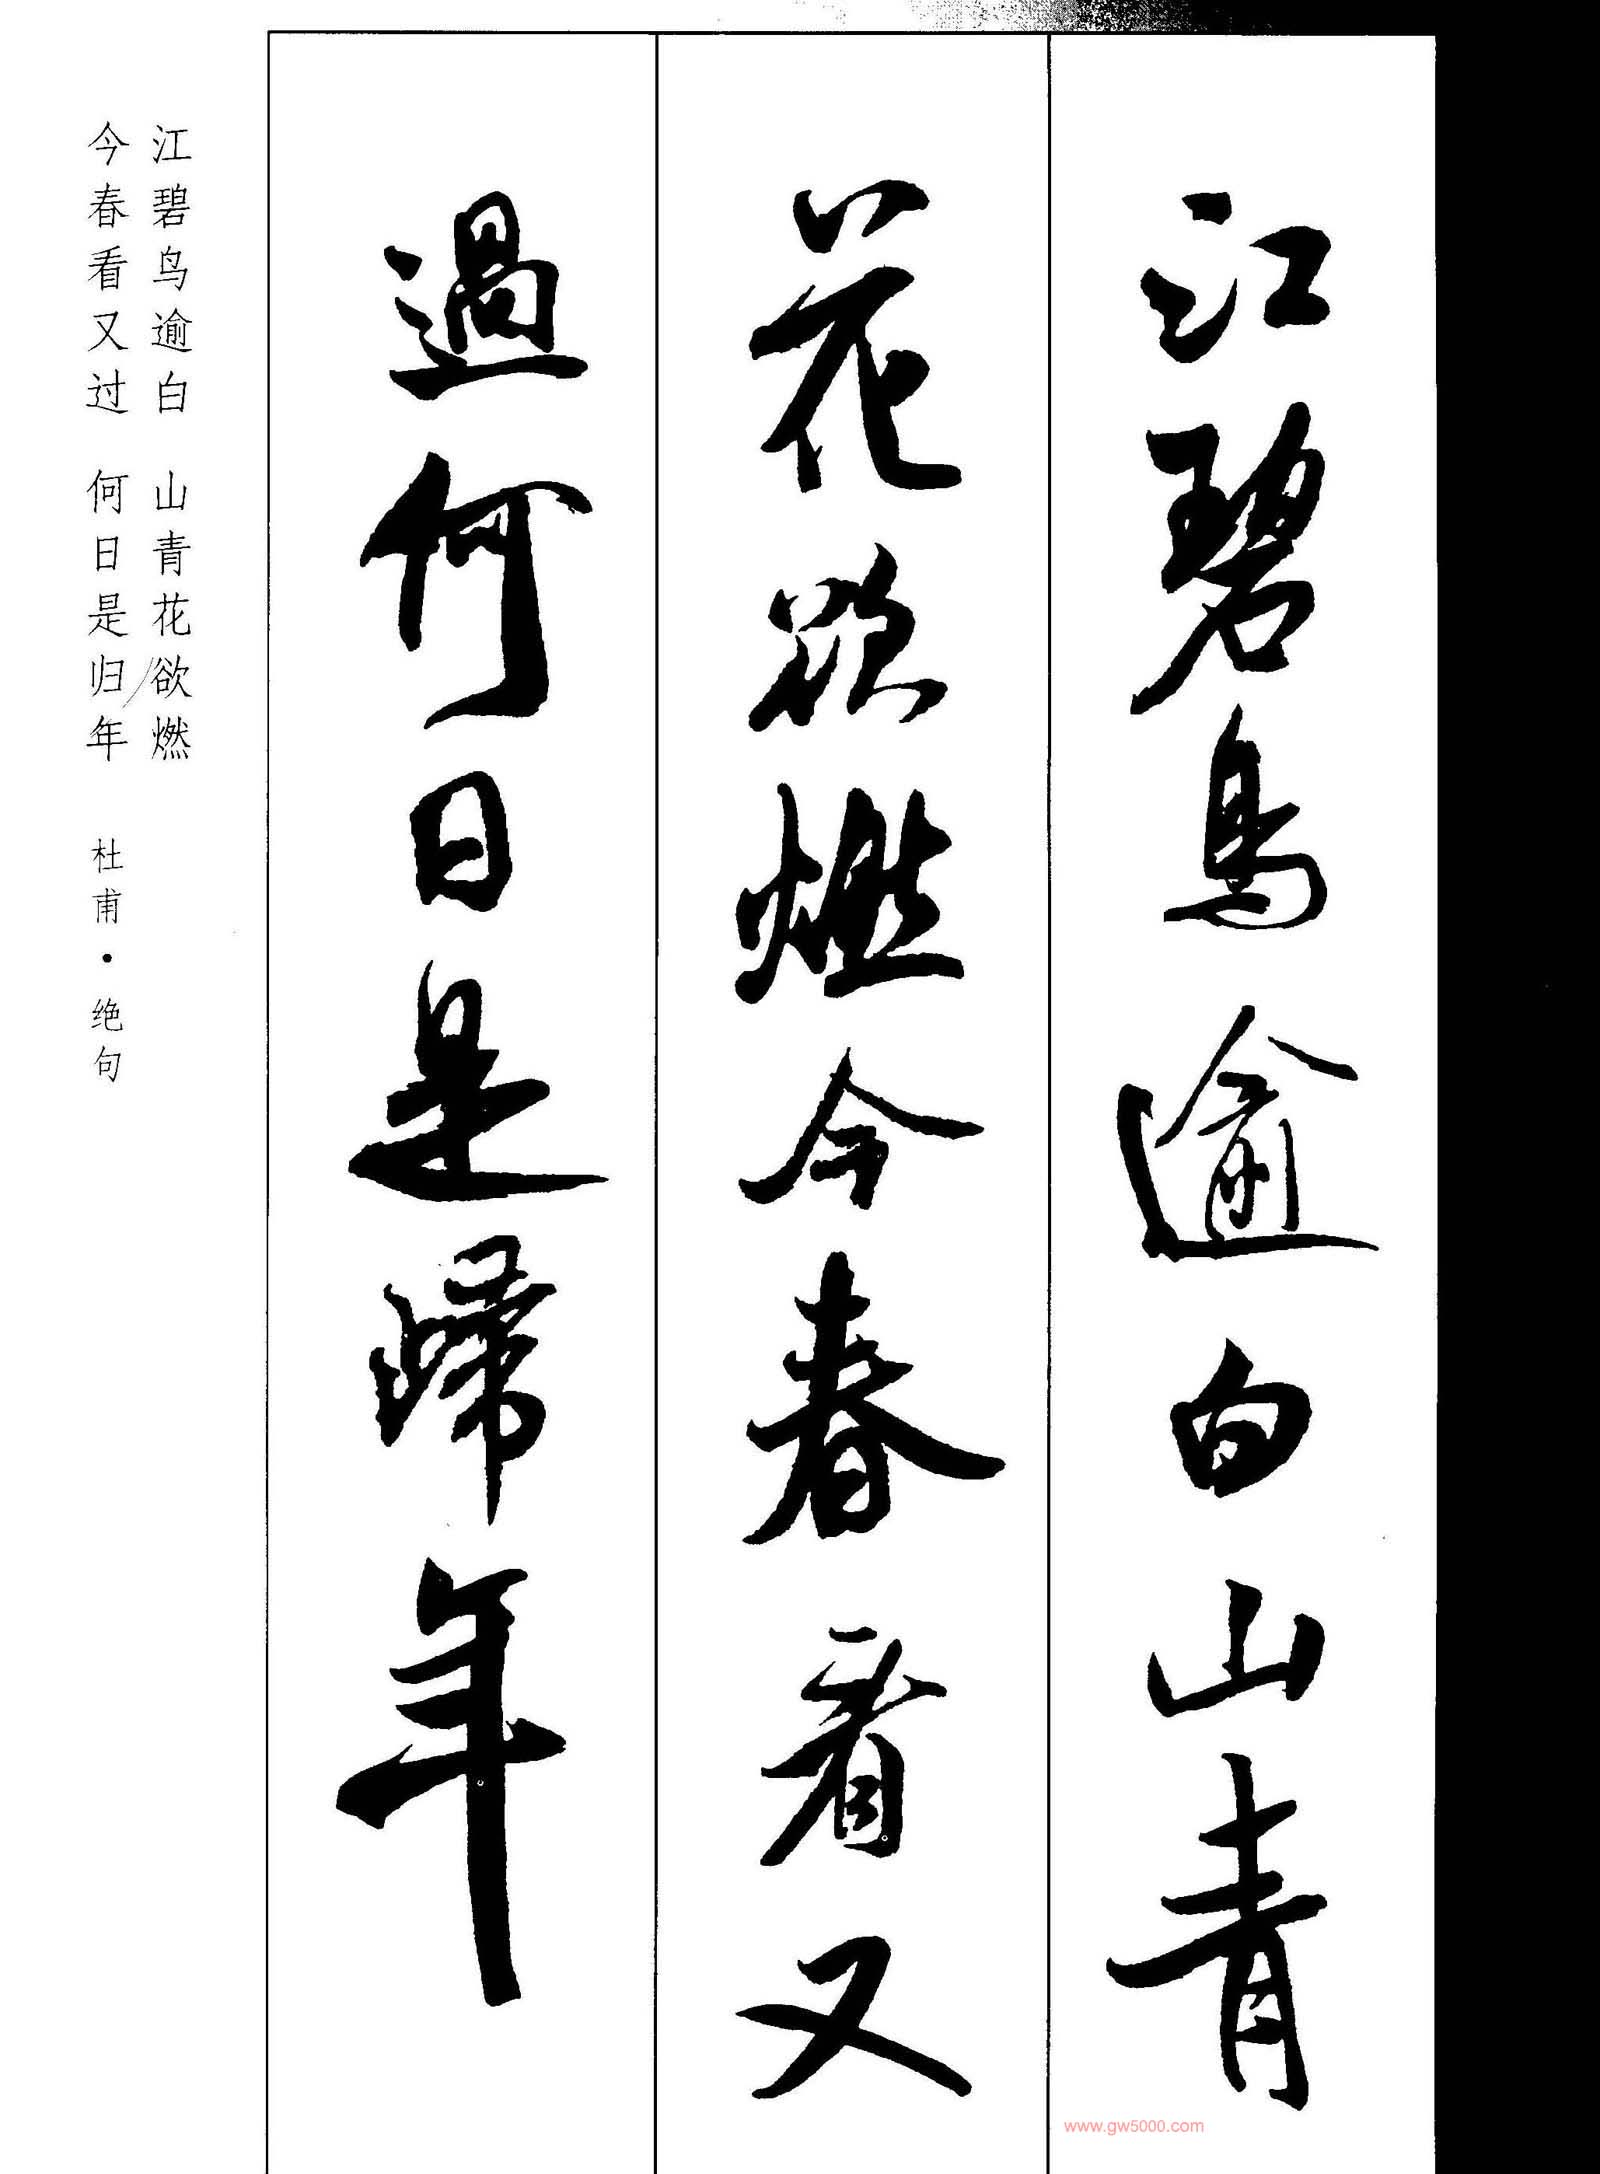 江碧鳥逾白山青
花欲燃今春看又
過何日是歸年
江碧鸟逾白 山青花欲燃
今春看又过 何日是归年 杜甫·绝句
www.gw5000.com